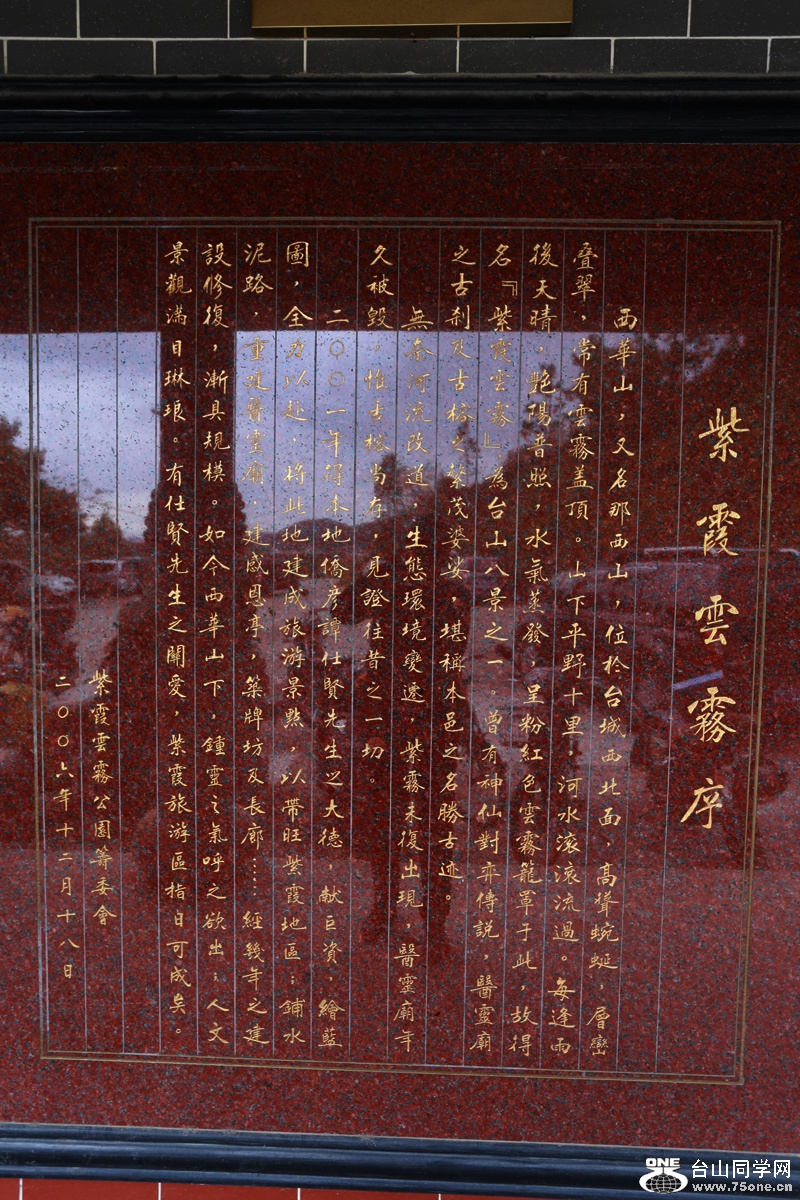 紫霞雲霧序
西華山，又名那西山，位於台城西北面，高聳蜿蜒，層巒
叠翠，常有雲霧盖頂。山下平野十里，河水滚滚流過。每逢雨
後天晴，艷陽普照，水氣蒸發，呈粉紅色雲霧籠罩于此，故得
名『紫霞雲霧』，為台山八景之一。曾有神仙對弈傳説，醫靈廟
之古刹及古榕之蒙茂婆娑，堪稱本邑之名勝古迹。
無奈河流改道，生態環境變遷，紫霧未復出現，醫靈廟年
久被毀。惟古榕尚存，見證往昔之一切。
二〇〇一年得本地僑彦譚仕賢先生之大德，献巨資，繪藍
圖，全力以赴，将此地建成旅游景點，以帶旺紫霞地區；鋪水
泥路，重建醫靈廟，建感恩亭，築牌坊及長廊……經幾年之建
設修復，漸具規模。如今西華山下，鍾靈之氣呼之欲出；人文
景觀满目琳琅。有仕賢先生之關愛，紫霞旅游區指日可成矣。
紫霞雲霧公園籌委會
二〇〇六年十二月十八日
ONE
台山同学网
www.75one.cn